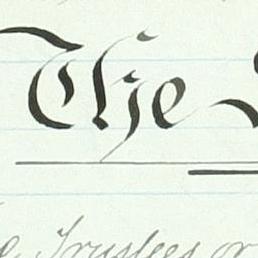 The
Trustees or